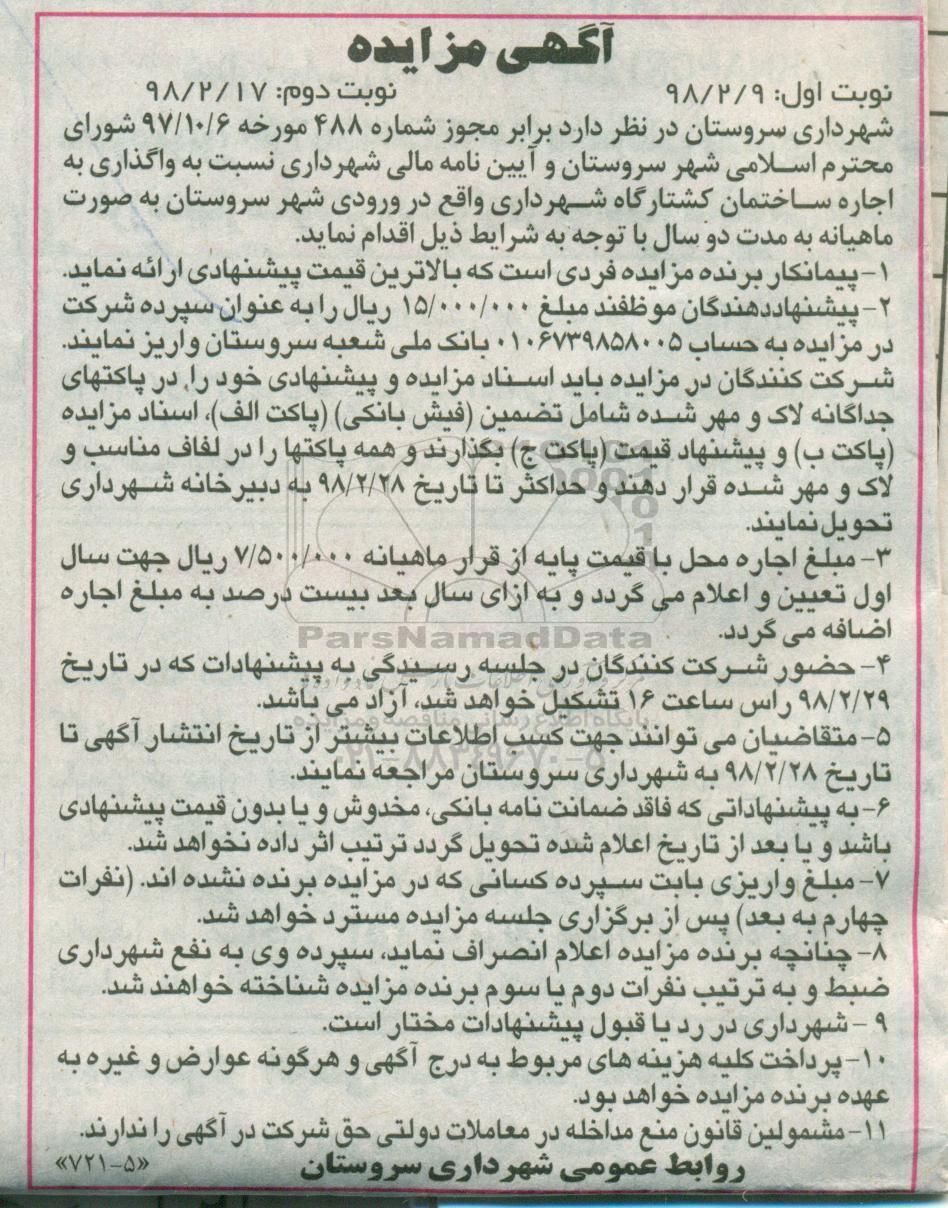 آگهی مزایده
نوبت اول: ۹۸/۲/۹ نوبت دوم: ۹۸/۲/۱۷
شهرداری سروستان در نظر دارد برابر مجوز شماره ۴۸۸ مورخه ۹۷/۱۰/۶ شورای
محترم اسلامی شهر سروستان و آیین نامه مالی شهرداری نسبت به واگذاری به
اجاره ساختمان کشتارگاه شهرداری واقع در ورودی شهر سروستان به صورت
ماهیانه به مدت دو سال با توجه به شرایط ذیل اقدام نماید.
۱- پیمانکار برنده مزایده فردی است که بالاترین قیمت پیشنهادی ارائه نماید.
۲- پیشنهاددهندگان موظفند مبلغ ۱۵/۰۰۰/۰۰۰ ریال را به عنوان سپرده شرکت
در مزایده به حساب ۰۱۰۶۷۳۹۸۵۸۰۰۵ بانک ملی شعبه سروستان واریز نمایند.
شرکت کنندگان در مزایده باید اسناد مزایده و پیشنهادی خود را در پاکتهای
جداگانه لاک و مهر شده شامل تضمین (فیش بانکی) (پاکت الف)، اسناد مزایده
(پاکت ب) و پیشنهاد قیمت (پاکت ج) بگذارند و همه پاکتها را در لفاف مناسب و
لاک و مهر شده قرار دهند و حداکثر تا تاریخ ۹۸/۲/۲۸ به دبیرخانه شهرداری
تحویل نمایند.
۳- مبلغ اجاره محل با قیمت پایه از قرار ماهیانه ۷/۵۰۰/۰۰۰ ریال جهت سال
اول تعیین و اعلام می گردد و به ازای سال بعد بیست درصد به مبلغ اجاره
اضافه می گردد.
ParsNamadData
۴- حضور شرکت کنندگان در جلسه رسیدگی به پیشنهادات که در تاریخ
۹۸/۲/۲۹ راس ساعت ۱۶ تشکیل خواهد شد، آزاد می باشد.
پایگاه اطلاع رسانی مناقصه و مزایده
۵- متقاضیان می توانند جهت کسب اطلاعات بیشتر از تاریخ انتشار آگهی تا
۰۲۱-۸۸۳۴۹۶۷۰-۵
تاریخ ۹۸/۲/۲۸ به شهرداری سروستان مراجعه نمایند.
۶- به پیشنهاداتی که فاقد ضمانت نامه بانکی، مخدوش و یا بدون قیمت پیشنهادی
باشد و یا بعد از تاریخ اعلام شده تحویل گردد ترتیب اثر داده نخواهد شد.
۷- مبلغ واریزی بابت سپرده کسانی که در مزایده برنده نشده اند. (نفرات
چهارم به بعد) پس از برگزاری جلسه مزایده مسترد خواهد شد.
۸- چنانچه برنده مزایده اعلام انصراف نماید، سپرده وی به نفع شهرداری
ضبط و به ترتیب نفرات دوم یا سوم برنده مزایده شناخته خواهند شد.
۹ - شهرداری در رد یا قبول پیشنهادات مختار است.
۱۰- پرداخت کلیه هزینه های مربوط به درج آگهی و هرگونه عوارض و غیره به
عهده برنده مزایده خواهد بود.
۱۱- مشمولین قانون منع مداخله در معاملات دولتی حق شرکت در آگهی را ندارند.
روابط عمومی شهرداری سروستان «۷۲۱-۵»